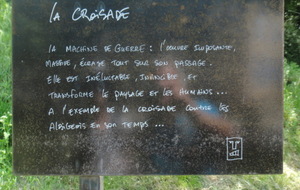 LA CROISADE
LA MACHINE DE GUERRE : L'OEUVRE IMPOSANTE,
MASSIVE, ÉCRASE TOUT SUR SON PASSAGE.
ELLE EST INÉLUCTABLE, INVINCIBLE, ET
TRANSFORME LE PAYSAGE ET LES HUMAINS...
A L'EXEMPLE DE LA CROISADE CONTRE LES
ALBIGEOIS EN SON TEMPS...